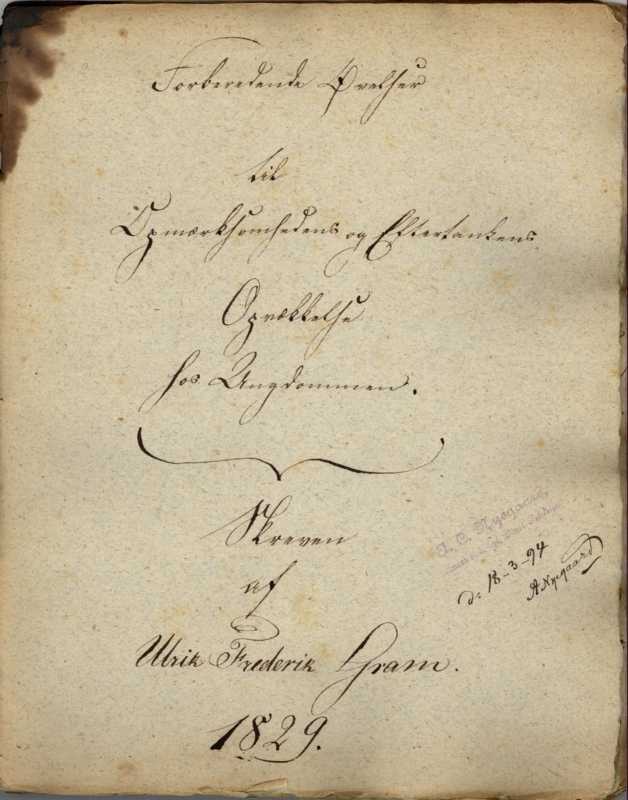 Forberedende Øvelser
til
Opmærksomhedens og Eftertankens
Opvækkelse
hos Ungdommen.
Skreven
af
Ulrik Frederik Gram.
1829.
J. C. Nygaard,
d: 18-3-94
A Nygaard